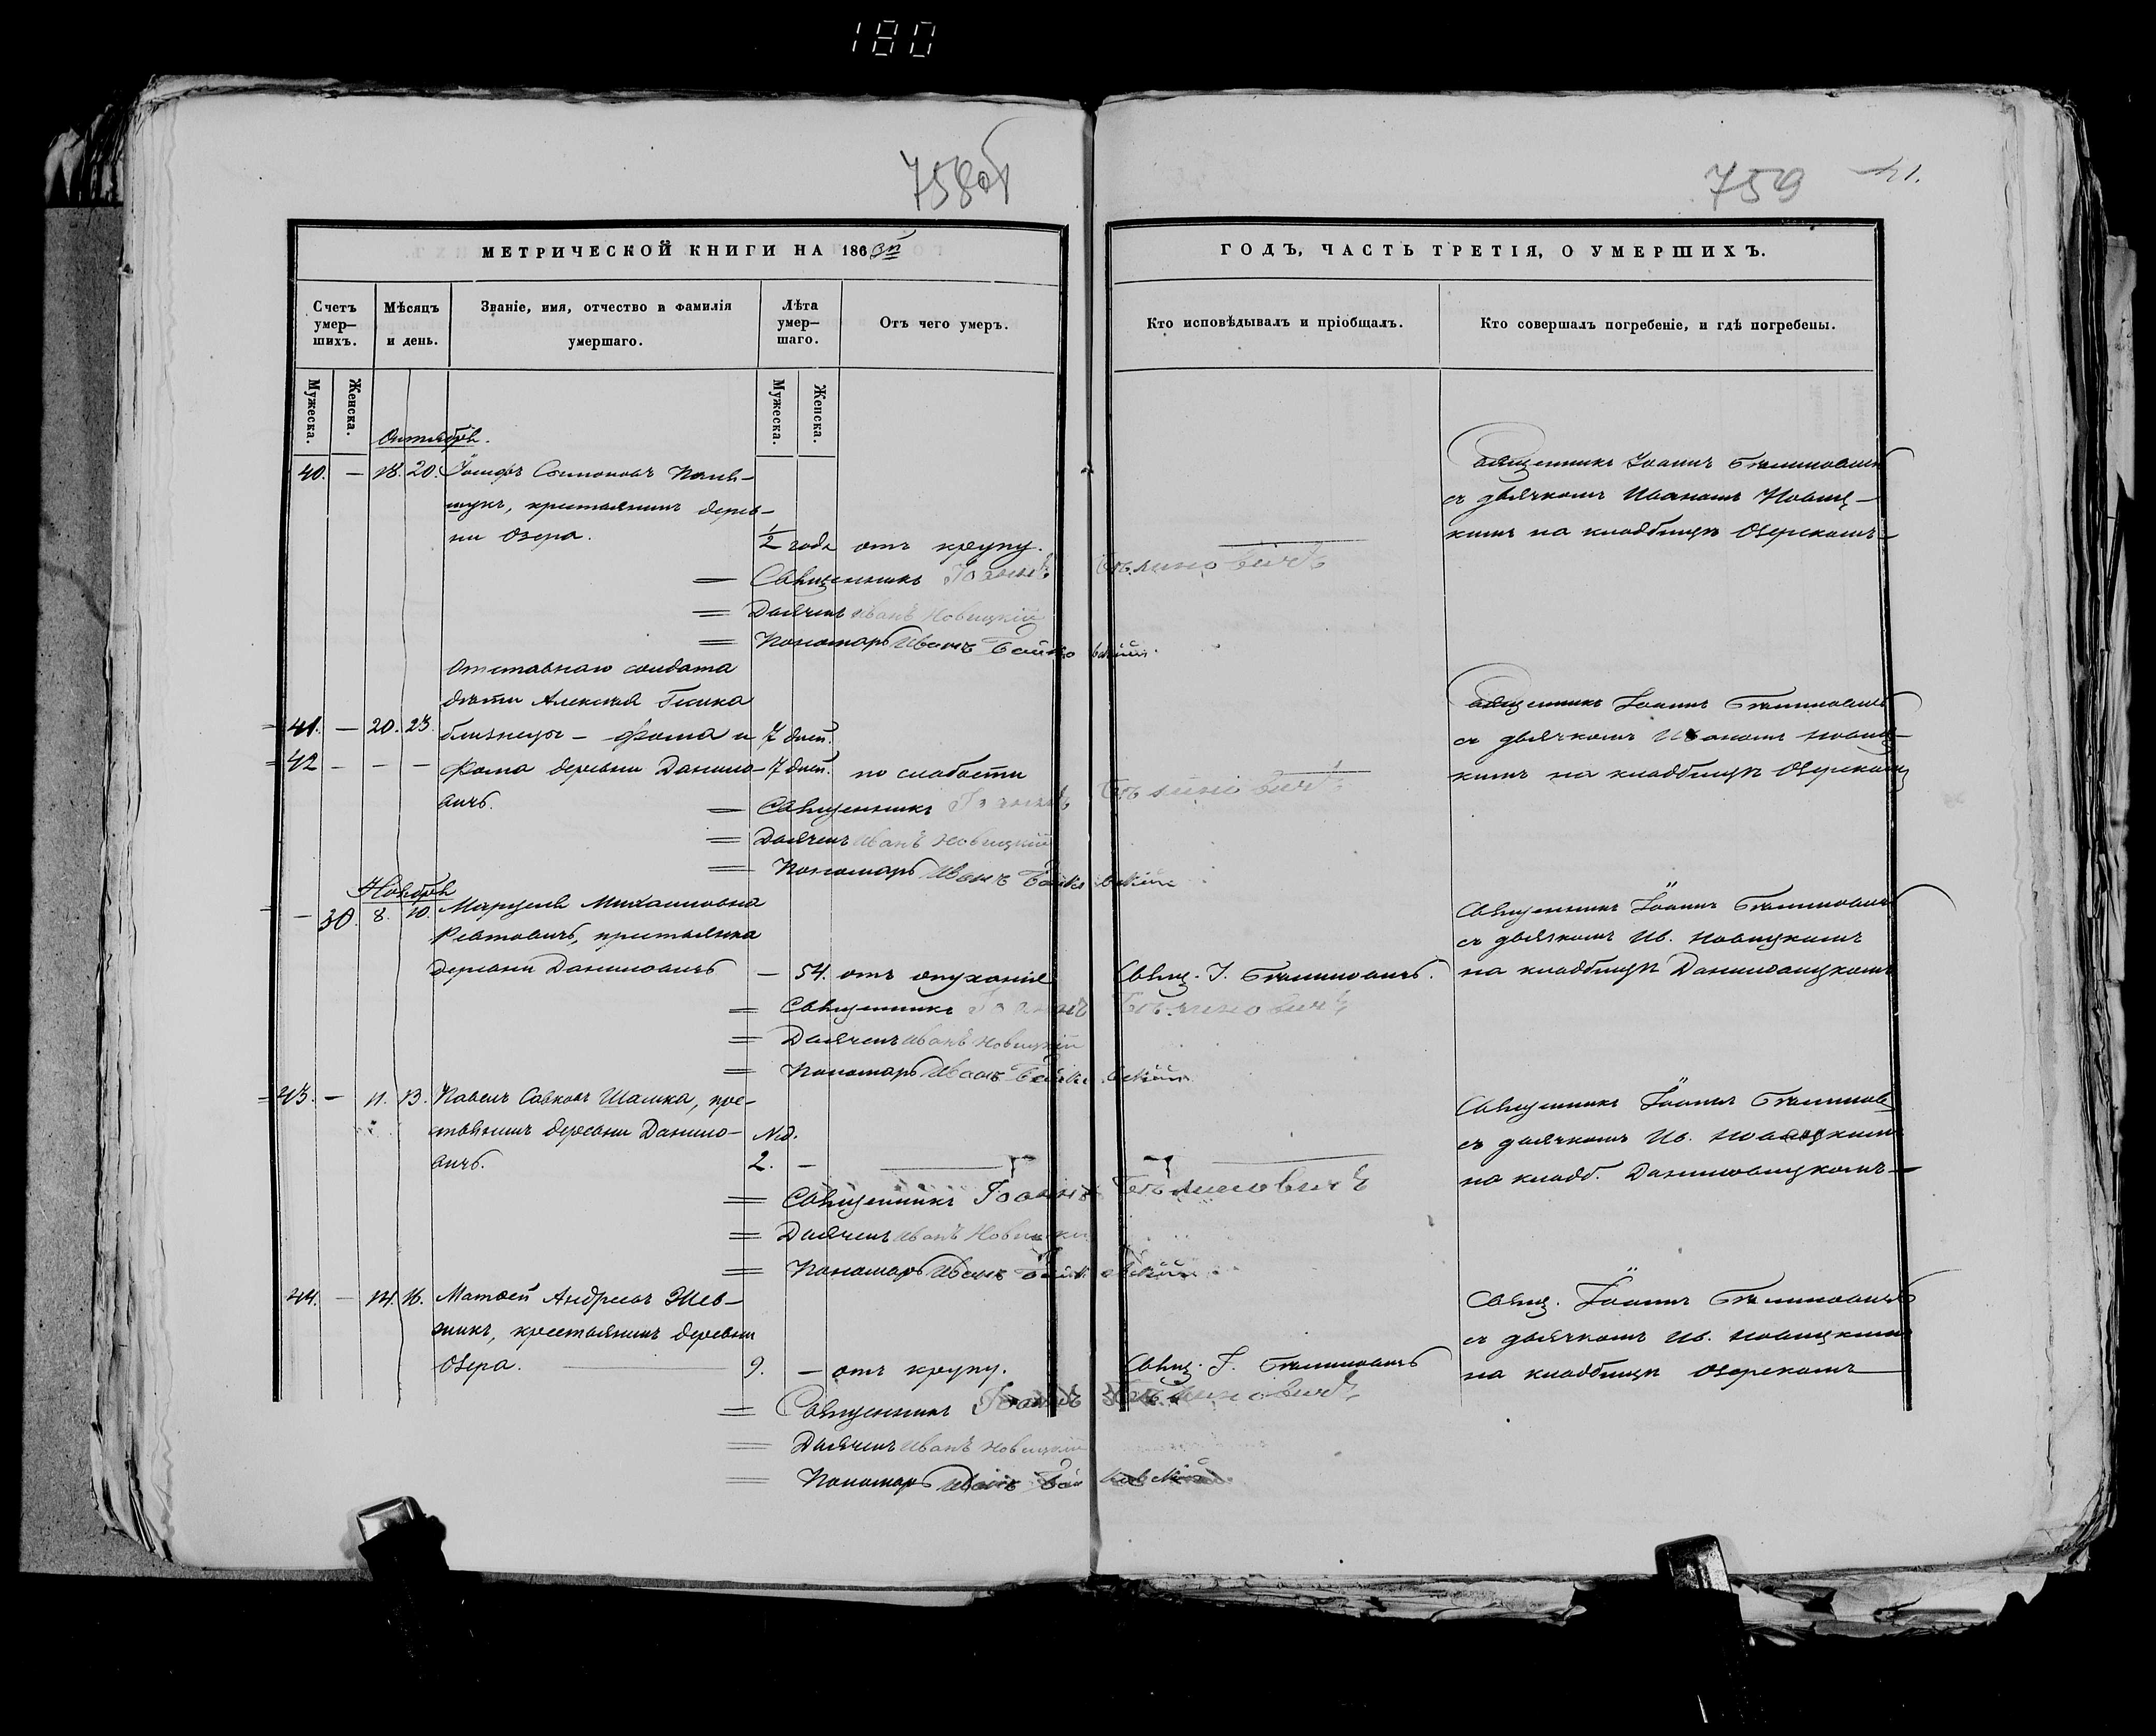 180
758об
759
41.
МЕТРИЧЕСКОЙ КНИГИ НА 1863й
ГОДЪ, ЧАСТЬ ТРЕТІЯ, О УМЕРШИХЪ.
Счетъ умер— шихъ.
Мѣсяцъ и день.
Званіе, имя, отчество и фамилія умершаго.
Лѣта умер— шаго.
Отъ чего умеръ.
Кто исповѣдывалъ и пріобщалъ.
Кто совершалъ погребеніе, и гдѣ погребены.
Мужеска.
Женска.
Мужеска.
Женска.
Октябрь.
40. — 18. 20. Іосифъ Симоновъ
крестьянинъ дерев—
ни Озера. ½ года отъ крупу.
Священникъ Іоаннъ
съ дьячкомъ Иваномъ Новиц—
кимъ на кладбищѣ Озерскомъ
= Священникъ Іоаннъ
= Дьячекъ Иванъ Новицкій
= Пономарь Иванъ
Отставнаго солдата
дѣти Алексѣя
41. — 20. 23. близнецы — Фома и 7 дней.
42 — — — Фома деревни Данило— 7 дней. по слабости
вичъ.
Священникъ Іоаннъ
съ дьячкомъ Иваномъ Новиц—
кимъ на кладбищѣ Озерскомъ
= Священникъ Іоаннъ
= Дьячекъ Иванъ Новицкій
= Пономарь Иванъ
Ноябрь
— 30. 8. 10. Михайловна
крестьянка
деревни Даниловичъ — 54. отъ опуханія
Свящ. І.
Священникъ Іоаннъ
съ дьячкомъ Ив. Новицкимъ
на кладбищѣ Даниловицкомъ
= Священникъ Іоаннъ
= Дьячекъ Иванъ Новицкій
= Пономарь Иванъ
43. — 11. 13. Павелъ Савковъ Шашка, кре—
стьянинъ деревни Данило— Нед.
вичъ. 2. —
Священникъ Іоаннъ
съ дьячкомъ Ив. Новицкимъ
на кладб. Даниловицкомъ
= Священникъ Іоаннъ
= Дьячекъ Иванъ Новицкій
= Пономарь Иванъ
44. — 14. 16. Матѳей Андреевъ
крестьянинъ деревни
Озера. 9. — отъ крупу.
Свящ. І.
Свящ. Іоаннъ
съ дьячкомъ Ив. Новицкимъ
на кладбищѣ Озерскомъ
= Священникъ Іоаннъ
= Дьячекъ Иванъ Новицкій
= Пономарь Иванъ